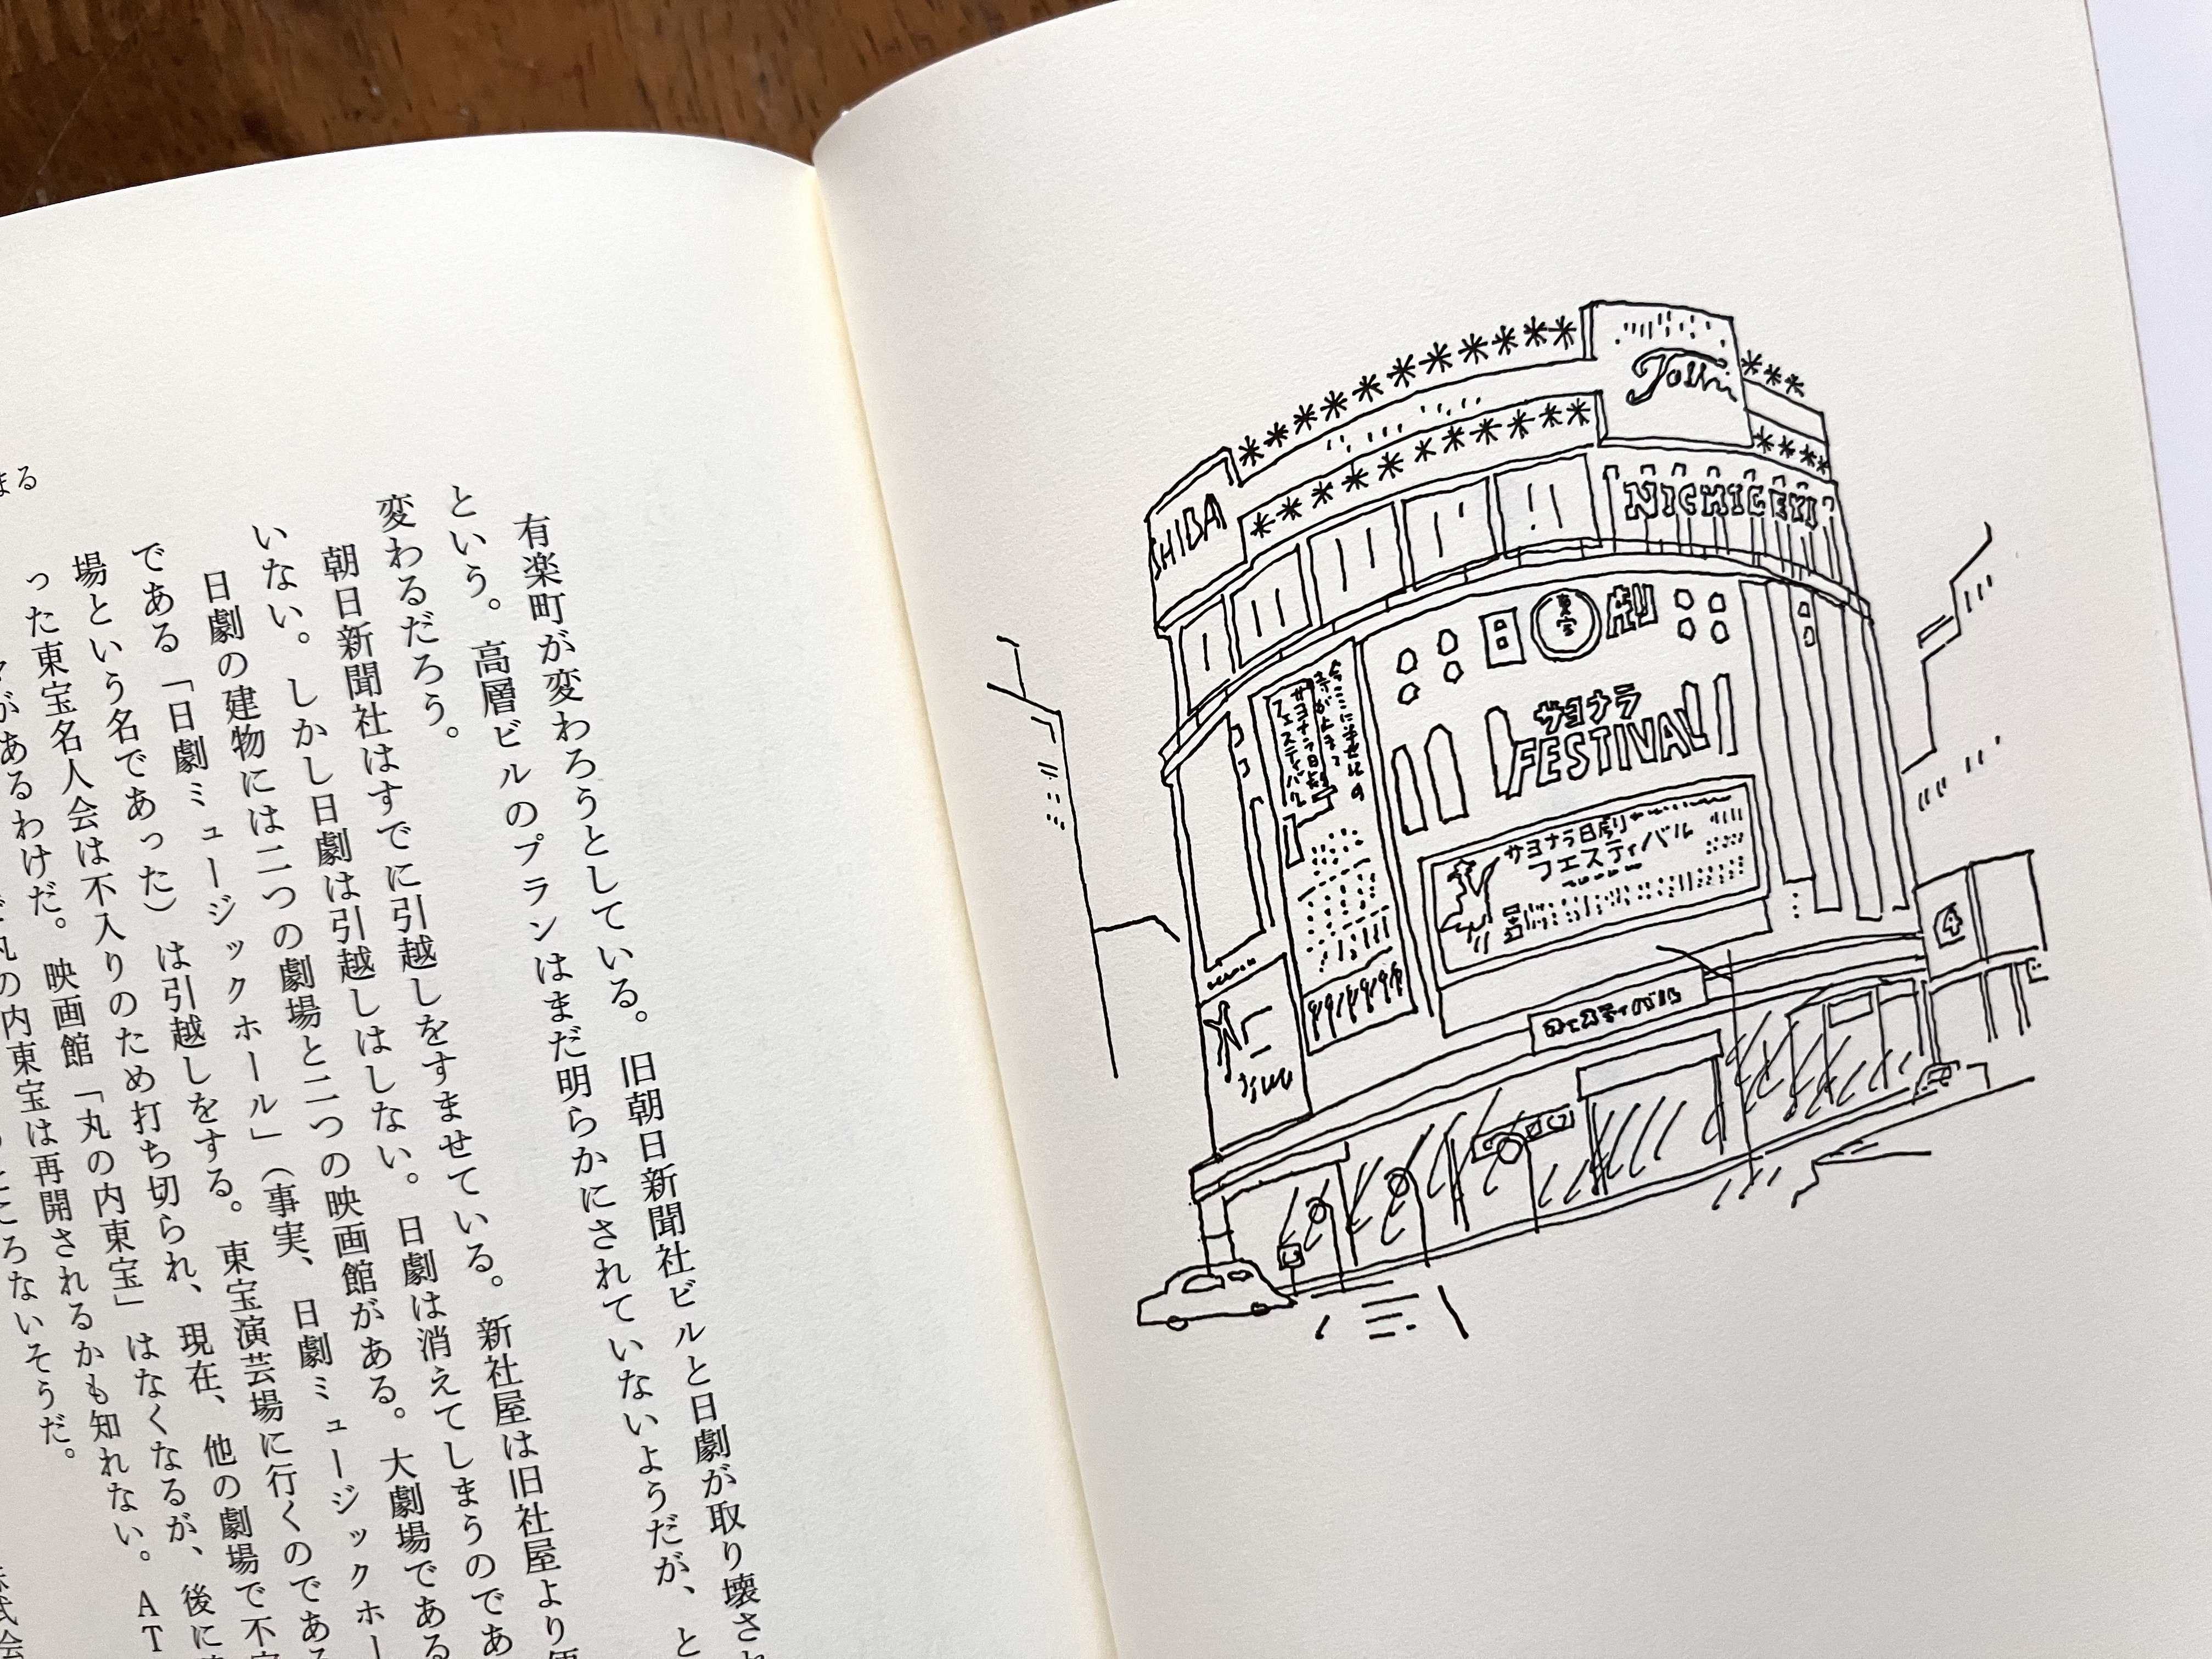 有楽町が変わろうとしている。旧朝日新聞社ビルと日劇が取り壊さ
という。高層ビルのプランはまだ明らかにされていないようだが、と
変わるだろう。
朝日新聞社はすでに引越しをすませている。新社屋は旧社屋より
いない。しかし日劇は引越しはしない。日劇は消えてしまうのであ
日劇の建物には二つの劇場と二つの映画館がある。大劇場である
である「日劇ミュージックホール」（事実、日劇ミュージックホー
場という名であった）は引越しをする。東宝演芸場に行くのである
った東宝名人会は不入りのため打ち切られ、現在、他の劇場で不
があるわけだ。映画館「丸の内東宝」はなくなるが、後に
の内東宝は再開されるかも知れない。AT
ころないそうだ。
まる
式会
SHIBA
NICHIGEKI
日
東宝
劇
サヨナラ
FESTIVAL
サヨナラ日劇
フェスティバル
サヨナラ日劇
フェスティバル
4